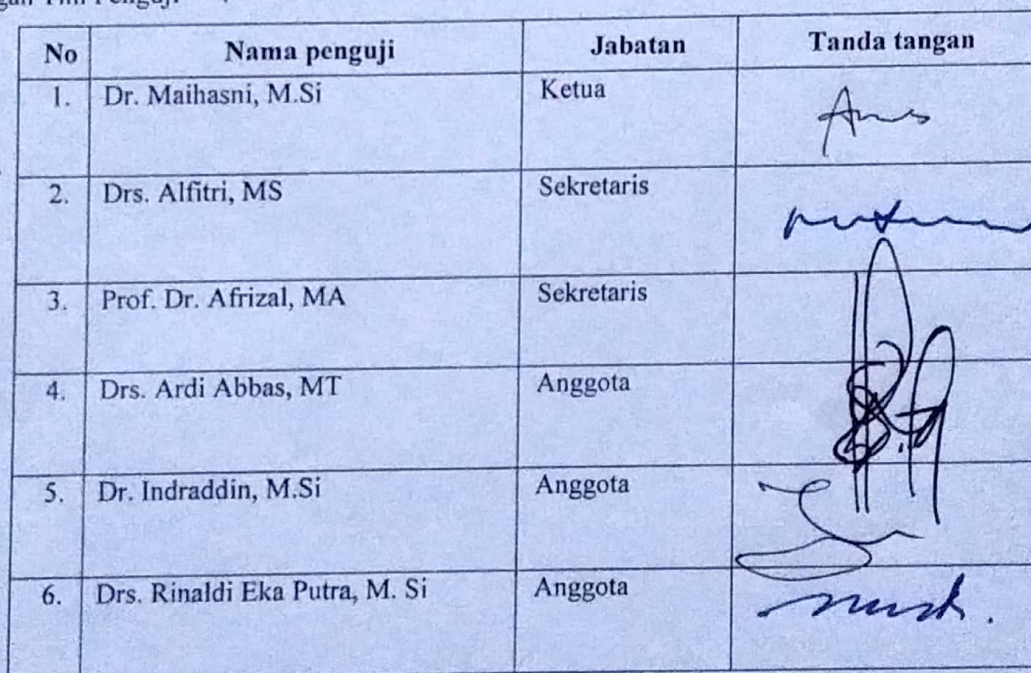 No Nama penguji Jabatan Tanda tangan
1. Dr. Maihasni, M.Si Ketua
2. Drs. Alfitri, MS Sekretaris
3. Prof. Dr. Afrizal, MA Sekretaris
4. Drs. Ardi Abbas, MT Anggota
5. Dr. Indraddin, M.Si Anggota
6. Drs. Rinaldi Eka Putra, M. Si Anggota